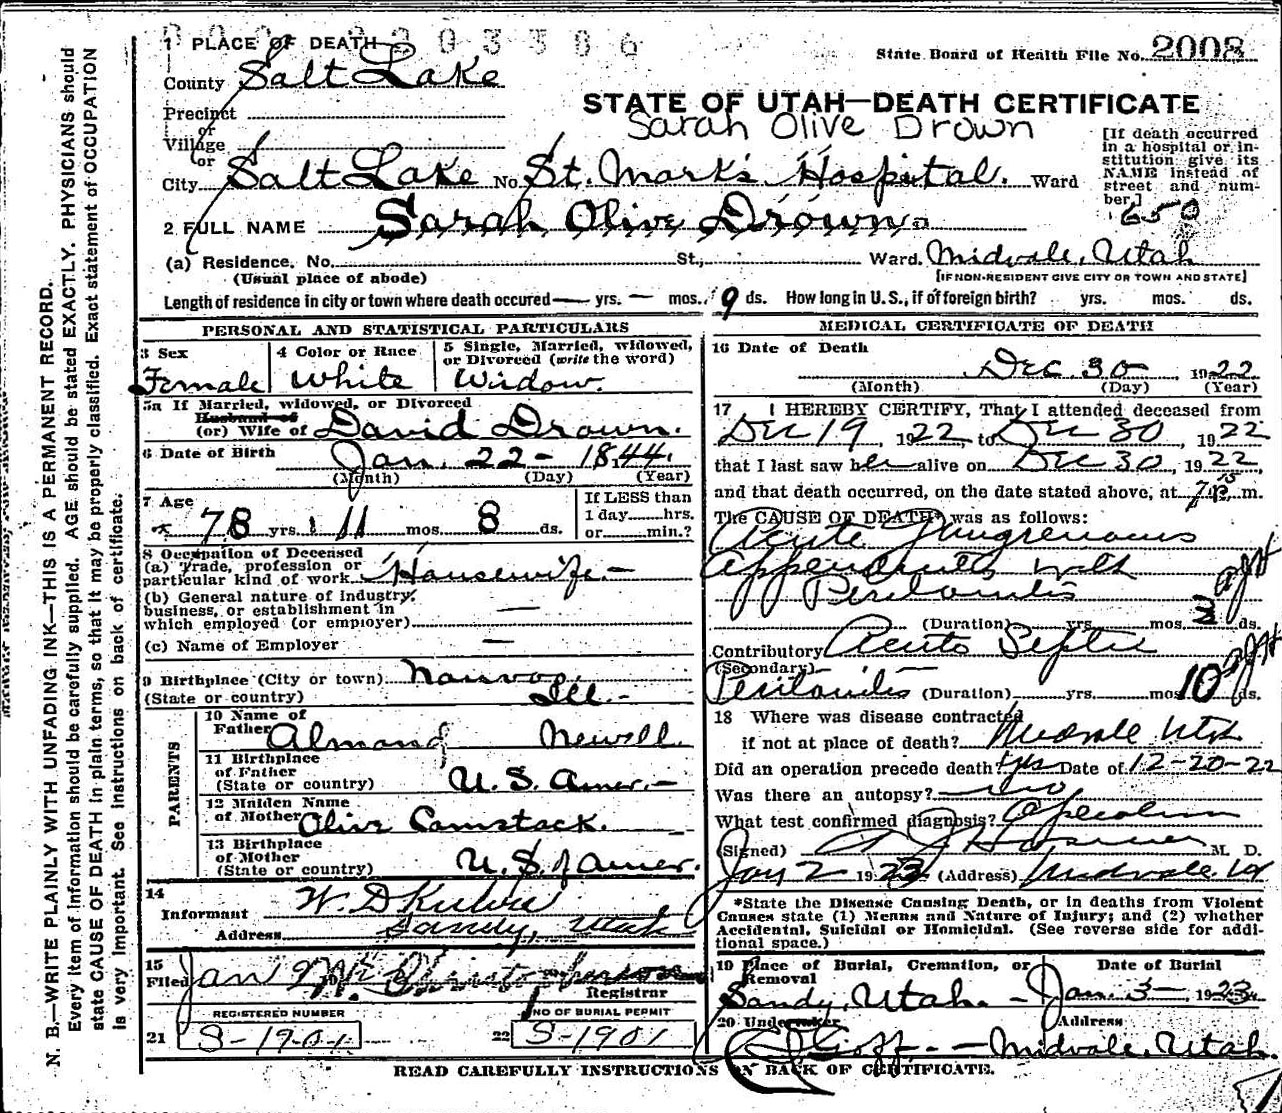 1 PLACE OF DEATH
State Board of Health File No. 2008
County Salt Lake
STATE OF UTAH—DEATH CERTIFICATE
Precinct
Sarah Olive Drown
or
Village
or
[If death occurred in a hospital or institution give its NAME instead of street and number.]
City Salt Lake No. St. Mark's Hospital. Ward
650
2 FULL NAME Sarah Olive Drown
(a) Residence, No. St., Ward. Midvale, Utah
(Usual place of abode) [IF NON-RESIDENT GIVE CITY OR TOWN AND STATE]
Length of residence in city or town where death occured — yrs. — mos. 9 ds. How long in U. S., if of foreign birth? yrs. mos. ds.
PERSONAL AND STATISTICAL PARTICULARS
3 Sex
Female
4 Color or Race
White
5 Single, Married, widowed, or Divorced (write the word)
Widow.
5a If Married, widowed, or Divorced
Husband of
(or) Wife of David Drown.
6 Date of Birth Jan. 22 - 1844.
(Month) (Day) (Year)
7 Age
78 yrs. 11 mos. 8 ds.
If LESS than
1 day hrs.
or min.?
8 Occupation of Deceased
(a) Trade, profession or
particular kind of work. Housewife. —
(b) General nature of industry,
business, or establishment in
which employed (or employer) —
(c) Name of Employer —
9 Birthplace (City or town) Nauvoo,
(State or country) Ill. -
PARENTS
10 Name of
Father Almand Newell.
11 Birthplace
of Father
(State or country) U. S. Amer. —
12 Maiden Name
of Mother Olive Comstock.
13 Birthplace
of Mother
(State or country) U. S. of Amer.
14
Informant W. D.
Address Sandy, Utah
15
Filed Jan
Registrar
REGISTERED NUMBER
21 S-1901
NO OF BURIAL PERMIT
22 S-1901
MEDICAL CERTIFICATE OF DEATH
16 Date of Death
Dec. 30 1922
(Month) (Day) (Year)
17 I HEREBY CERTIFY, That I attended deceased from
Dec 19, 1922, to Dec 30, 1922
that I last saw her alive on Dec 30, 1922,
and that death occurred, on the date stated above, at 7 15 P. m.
The CAUSE OF DEATH* was as follows:
Acute Gangrenous
Appendicitis with
Peritonitis
(Duration) yrs. mos. 3 ds.
Contributory Acute Septic
(Secondary)
Peritonitis (Duration) yrs. mos 10 ds.
18 Where was disease contracted
if not at place of death? Midvale Utah
Did an operation precede death? Yes Date of 12-20-22
Was there an autopsy? No
What test confirmed diagnosis? Operation
(Signed) M. D.
Jan 2 1923 (Address) Midvale Ut
*State the Disease Causing Death, or in deaths from Violent
Causes state (1) Means and Nature of Injury; and (2) whether
Accidental, Suicidal or Homicidal. (See reverse side for addi-
tional space.)
19 Place of Burial, Cremation, or
Removal
Sandy, Utah. -
Date of Burial
Jan. 3 — 1923
20 Undertaker Address
Goff. — Midvale, Utah.
READ CAREFULLY INSTRUCTIONS ON BACK OF CERTIFICATE.
N. B.—WRITE PLAINLY WITH UNFADING INK—THIS IS A PERMANENT RECORD.
Every item of information should be carefully supplied. AGE should be stated EXACTLY. PHYSICIANS should
state CAUSE OF DEATH in plain terms, so that it may be properly classified. Exact statement of OCCUPATION
is very important. See instructions on back of certificate.